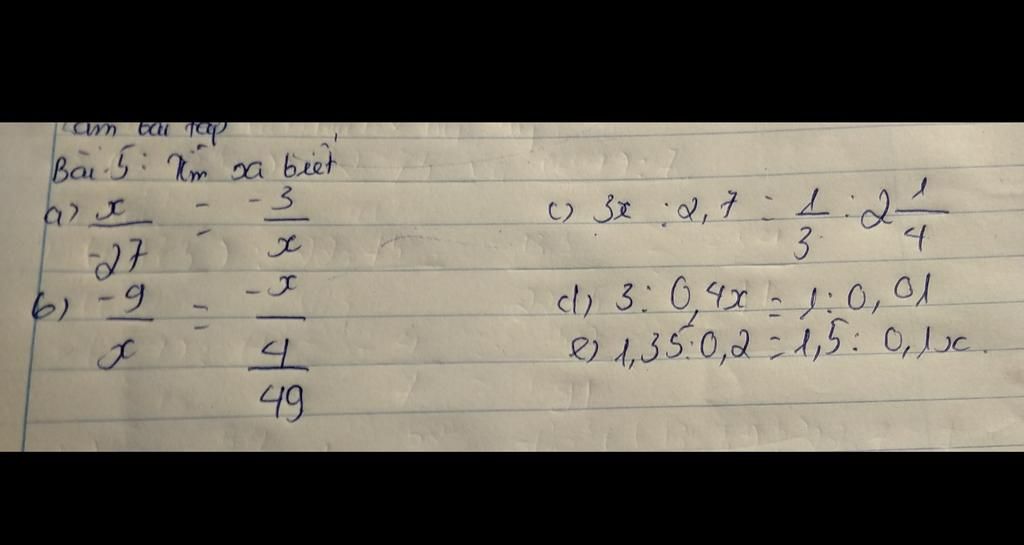 Làm bài tập
Bài 5: Tìm x biết
a) x/-27 = -3/x
b) -9/x = -x/(4/49)
c) 3x : 2,7 = 1/3 : 2 1/4
d) 3 : 0,4x = 1 : 0,01
e) 1,35 : 0,2 = 1,5 : 0,1x.